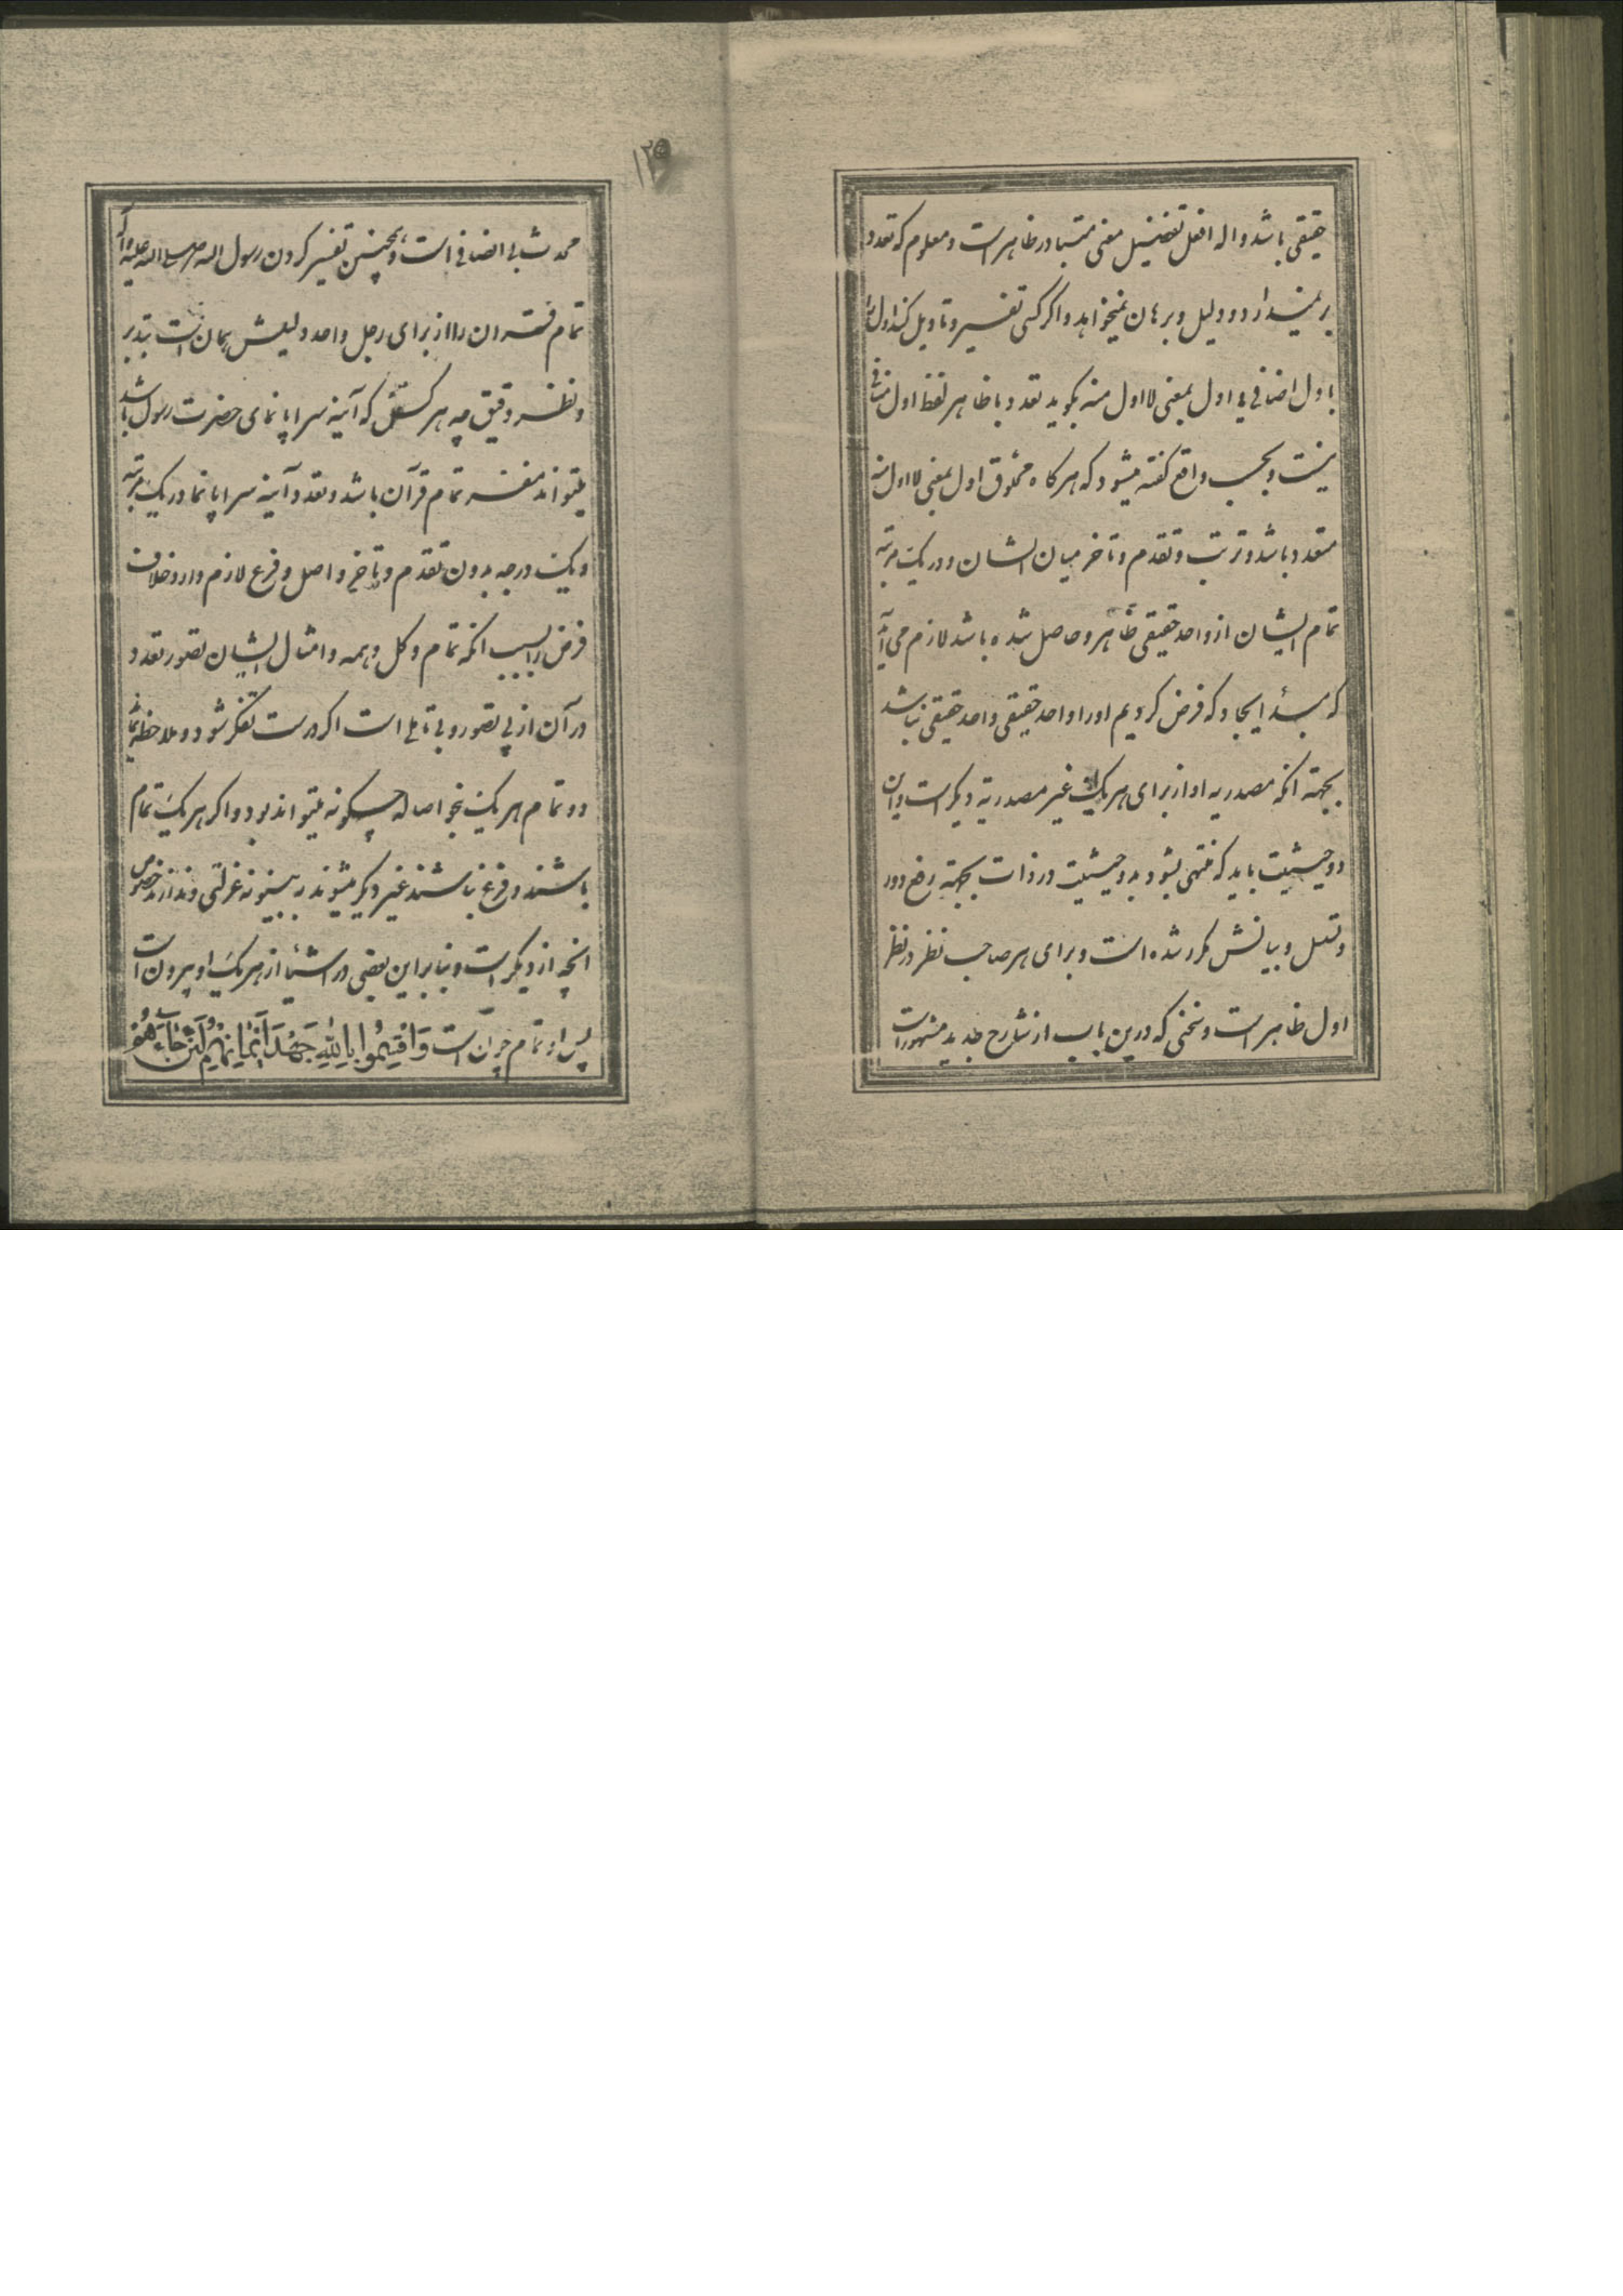 حقیقی باشد و اله افعل تفضیل معنی متبادر ظاهر است و معلوم که تعدد
بر نمیدارد و دلیل و برهان نمیخواهد و اگر کسی تفسیر و تاویل کند اول را
باول اضافی یا اول بمعنی لا اول منه بگوید تعدد با ظاهر لفظ اول منافی
نیست و بحسب واقع گفته میشود که هرگاه مخلوق اول بمعنی لا اول منه
متعدد باشد و ترتب و تقدم و تاخر میان ایشان و در یک مرتبه
تمام ایشان از واحد حقیقی ظاهر و حاصل شده باشد لازم می آید
که مبدأ ایجاد که فرض کردیم او را واحد حقیقی واحد حقیقی نباشد
بجهته انکه مصدریه او از برای هر یک غیر مصدریة دیگر است و این
دو حیثیت باید که منتهی بشود بدو حیثیت در ذات بجهته رفع دور
و تسلسل و بیانش مکرر شده است و برای هر صاحب نظر در نظر
اول ظاهر است و سخنی که درین باب از شارح جدید مشهور است
۱۲۵
محمد شابی اضافی است و همچنین تفسیر کردن رسول الله صلی الله علیه و آله
تمام قران را از برای رجل واحد دلیلش همان است بتدبر
و نظر دقیق چه هر کس که آینه سراپا نمای حضرت رسول باشد
میتواند مفسر تمام قرآن باشد و تعدد آینه سراپا نما در یک مرتبه
و یک درجه بدون تقدم و تاخر و اصل و فرع لازم دارد خلاف
فرض را بسبب انکه تمام و کل و همه و امثال ایشان تصور تعدد
در آن از بی تصور و بی تاملی است اگر درست تفکر شود و ملاحظه نما
دو تمام هر یک بنحو اصاله چگونه میتواند بود و اگر هر یک تمام
باشند و فرع نباشند غیر دیگر میشوند ببینونه عزلتی و ندارند خصوص
انچه از دیگر است و بنابراین بعضی در اشیا از هر یک او بیرون است
پس او تمام چون است وَاَقْسَمُوا بِاللّٰهِ جَهْدَ اَیْمَانِهِمْ لَئِنْ جَاءَهُمْ